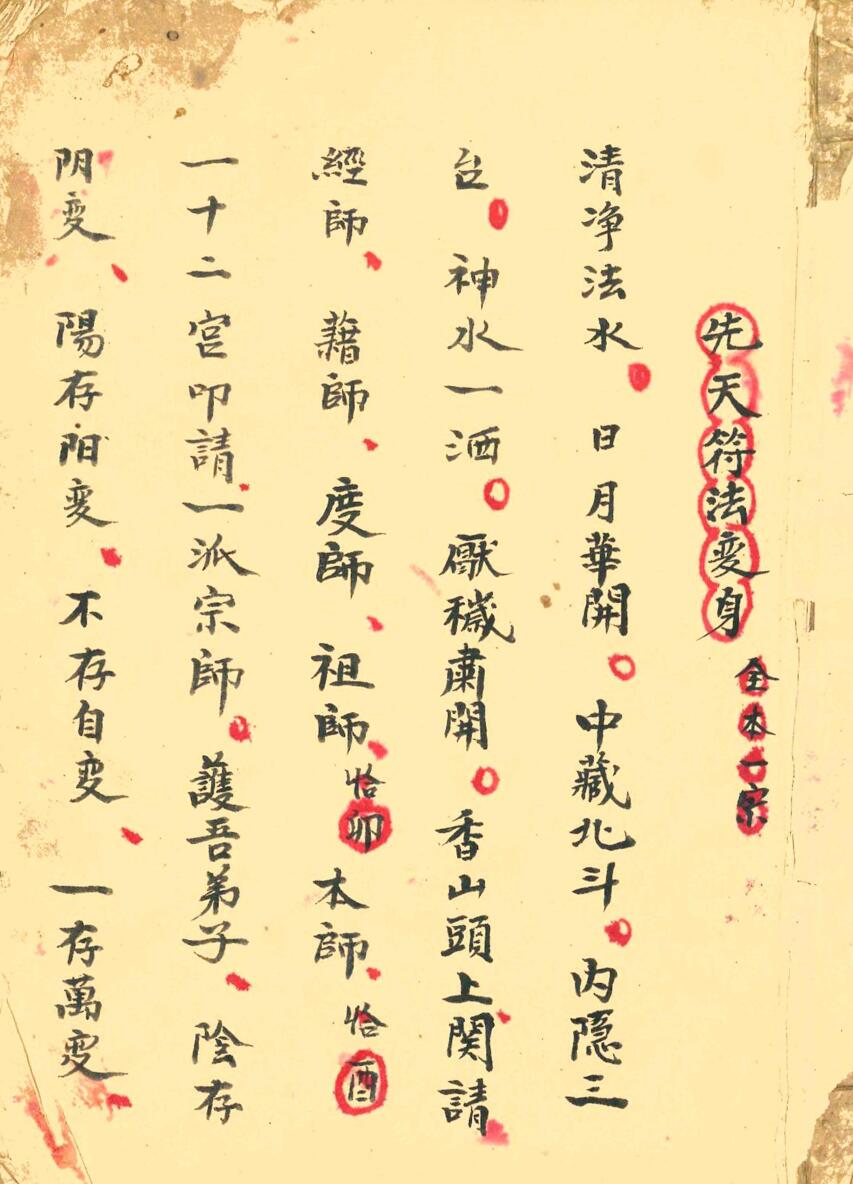 先天符法变身 全本一宗
清净法水 日月華開 中藏北斗 内隠三
台 神水一洒 厭穢肅開 香山頭上関請
經師 藉師 度師 祖師 恰卯 本師 恰酉
一十二宮叩請一派宗師 護吾弟子 陰存
阴变 陽存阳变 不存自变 一存萬变